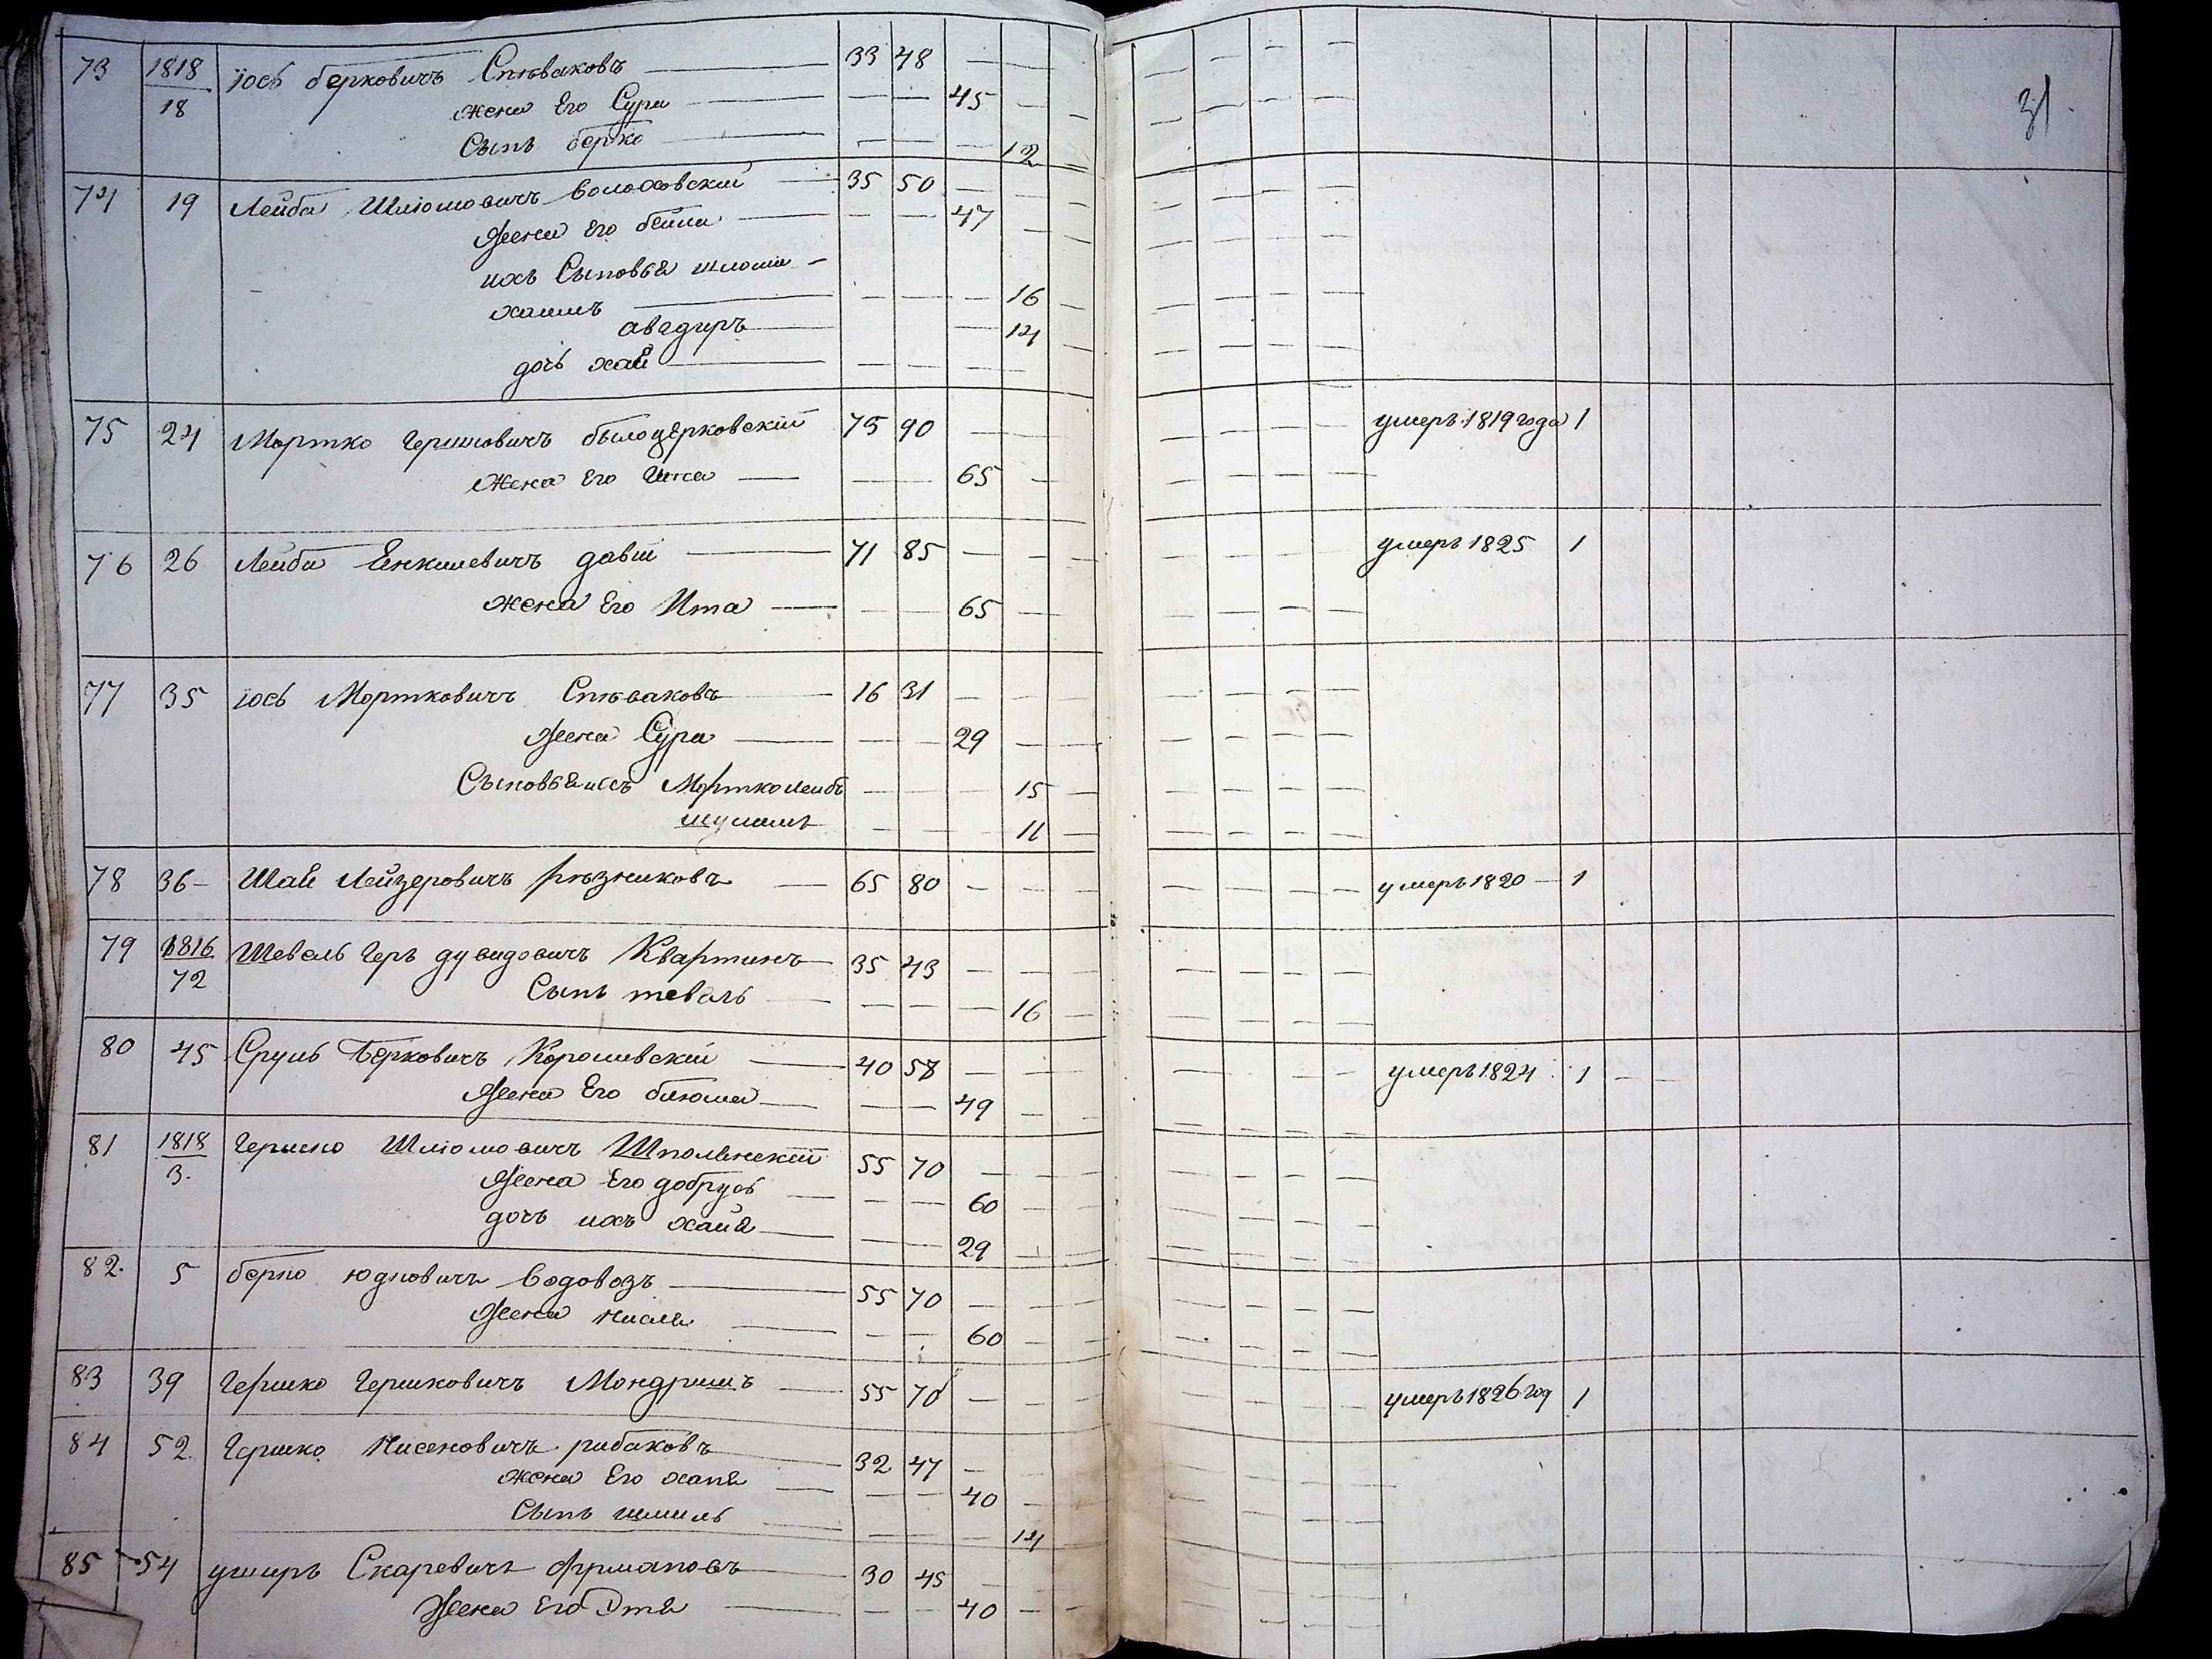 31
73 1818/18 Іось берковичъ Спѣваковъ 33 48 — —
жена Его Сура — — 45 —
Сынъ берко — — — 12
74 19 Лейба Шліомовичъ Волоховскій 35 50 —
Жена Его бейла — — 47 —
ихъ Сыновья шлома —
хаимъ — — — 16 —
авадиръ — 14 —
дочь хая — — — —
75 24 Мортко Гершковичъ былоцерковскій 75 90 — — умеръ 1819 года 1
Жена Его — — 65 —
76 26 Лейба Енкилевичъ 71 85 — — умеръ 1825 1
жена Его Ита — — 65 —
77 35 Іось Мортковичъ Спѣваковъ 16 31 —
Жена Сура — — 29 —
Сыновья ихъ Мортколейбъ — — — 15 —
шулимъ — — — 11 —
78 36 — Шая Лейзеровичъ рѣзниковъ — 65 80 — — умеръ 1820 — 1
79 1816/72 Шевель Геръ дувидовичъ Квартинъ 35 43 — —
Сынъ тевель — — — 16 —
80 45 Сруль Берковичъ 40 58 — — умеръ 1824 1 — —
Жена Его блюма — — 49 —
81 1818/3. Гершко Шліомовичъ Шполянскій 55 70 —
Жена Его добрусь — — 60 —
дочь ихъ хайя — — 29 —
82. 5 берко юдковичъ Водовозъ 55 70 —
Жена — — 60 —
83 39 Гершко Гершковичъ Мондришъ 55 70 — — умеръ 1826 год 1
84 52 Гершко Нисеновичъ рибаковъ 32 47 —
жена Его хапя — — 40 —
Сынъ шмиль — — — 14
85 54 ушеръ Скаревичъ Фурмановъ 30 45 —
Жена Его Этя — — 40 —